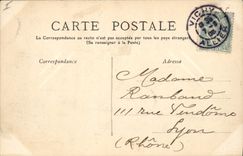 CARTE POSTALE
La Correspondance au recto n'est pas acceptée par tous les pays étrangers
(Se renseigner à la Poste)
Correspondance
Adresse
VICHY
ALLIER
Madame
Rambaud
111 rue Vendôme
Lyon
(Rhône)